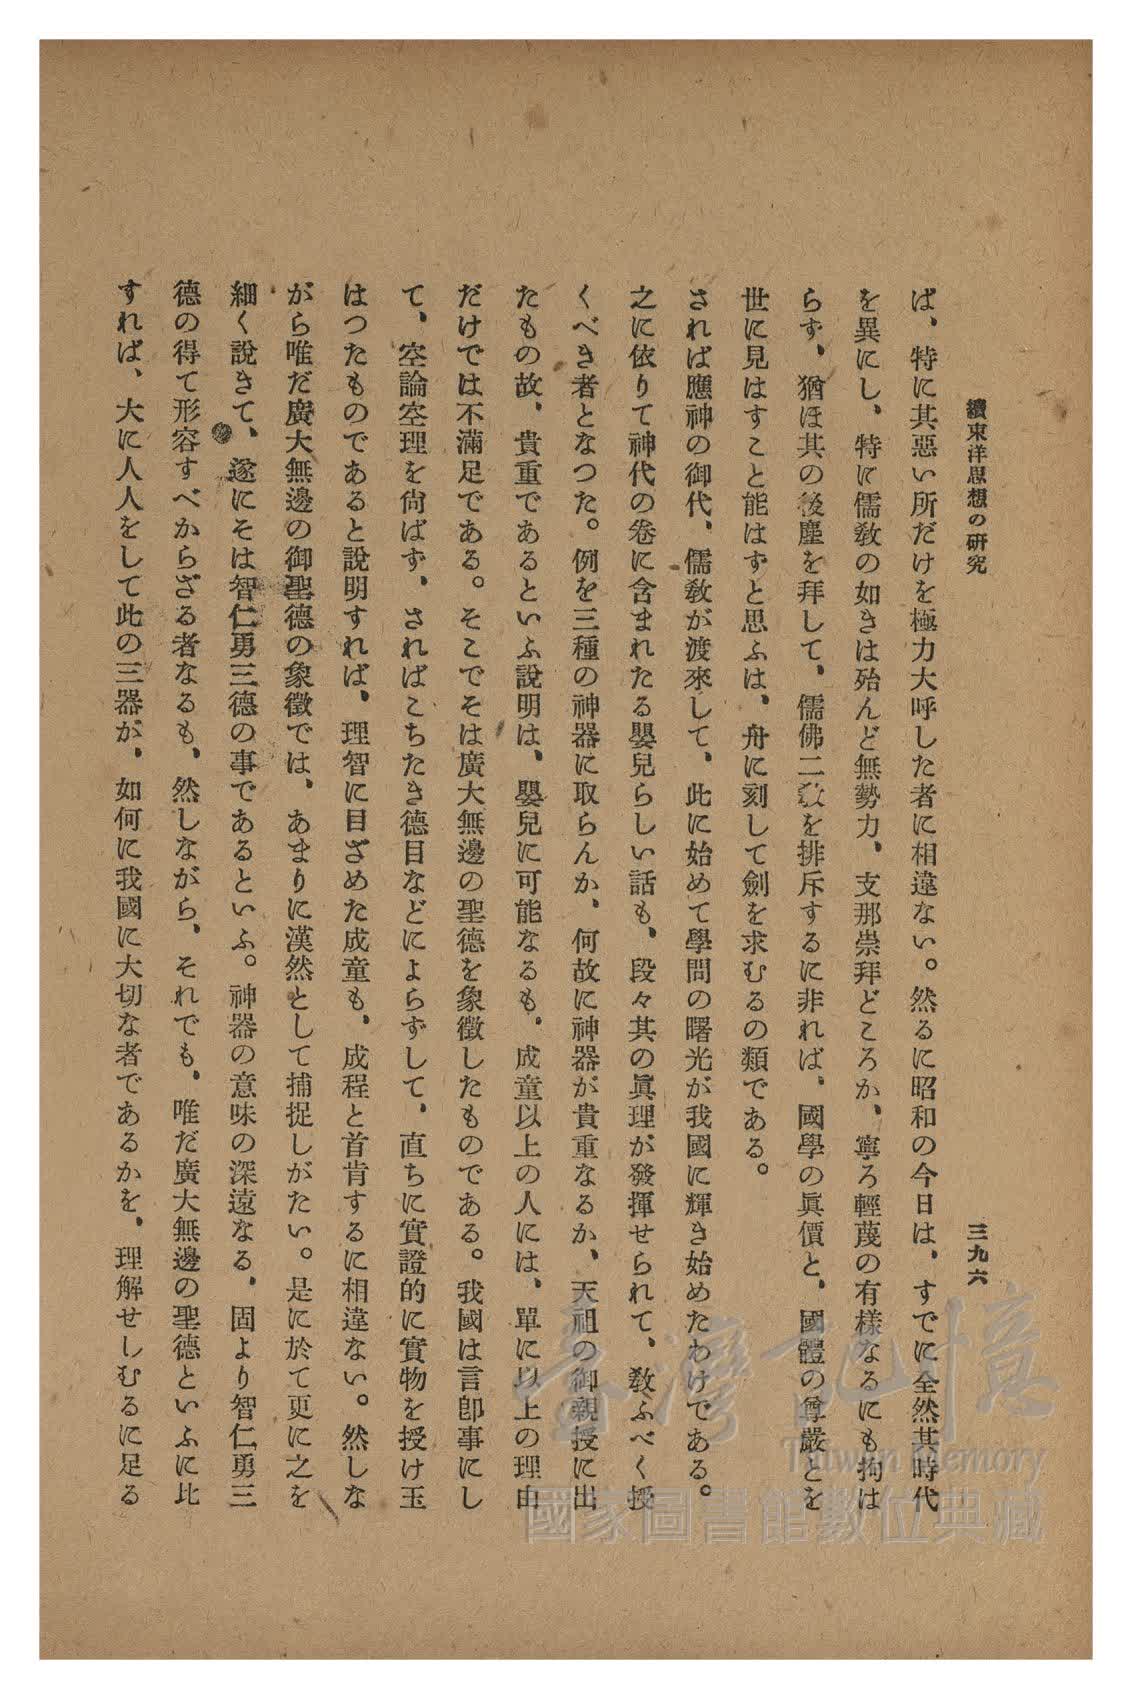 續東洋思想の研究
三九六
ば、特に其惡い所だけを極力大呼した者に相違ない。然るに昭和の今日は、すでに全然其時代
を異にし、特に儒敎の如きは殆んど無勢力、支那崇拜どころか、寧ろ輕蔑の有樣なるにも拘は
らず、猶ほ其の後塵を拜して、儒佛二敎を排斥するに非れば、國學の眞價と、國體の尊嚴とを
世に見はすこと能はずと思ふは、舟に刻して劍を求むるの類である。
されば應神の御代、儒敎が渡來して、此に始めて學問の曙光が我國に輝き始めたわけである。
之に依りて神代の卷に含まれたる嬰兒らしい話も、段々其の眞理が發揮せられて、敎ふべく授
くべき者となつた。例を三種の神器に取らんか、何故に神器が貴重なるか、天祖の御親授に出
たもの故、貴重であるといふ說明は、嬰兒に可能なるも、成童以上の人には、單に以上の理由
だけでは不滿足である。そこでそは廣大無邊の聖德を象徵したものである。我國は言卽事にし
て、空論空理を尙ばず、さればこちたき德目などによらずして、直ちに實證的に實物を授け玉
はつたものであると說明すれば、理智に目ざめた成童も、成程と首肯するに相違ない。然しな
がら唯だ廣大無邊の御聖德の象徵では、あまりに漠然として捕捉しがたい。是に於て更に之を
細く說きて、遂にそは智仁勇三德の事であるといふ。神器の意味の深遠なる、固より智仁勇三
德の得て形容すべからざる者なるも、然しながら、それでも、唯だ廣大無邊の聖德といふに比
すれば、大に人人をして此の三器が、如何に我國に大切な者であるかを、理解せしむるに足る
臺灣記憶
Taiwan Memory
國家圖書館數位典藏